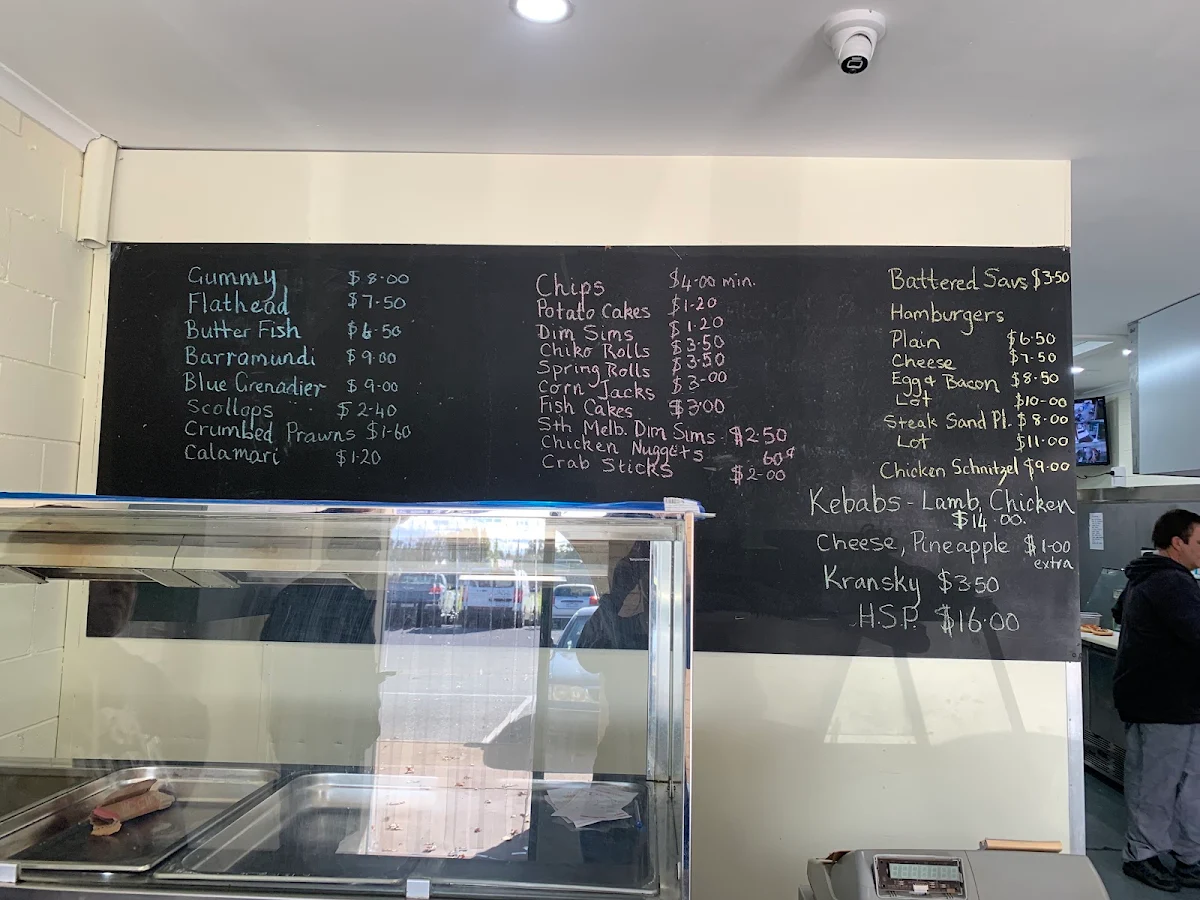 Gummy $8.00
Flathead $7.50
Butter Fish $6.50
Barramundi $9.00
Blue Grenadier $9.00
Scollops $2.40
Crumbed Prawns $1.60
Calamari $1.20
Chips $4.00 min.
Potato Cakes $1.20
Dim Sims $1.20
Chiko Rolls $3.50
Spring Rolls $3.50
Corn Jacks $3.00
Fish Cakes $3.00
Sth Melb. Dim Sims $2.50
Chicken Nuggets 60¢
Crab Sticks $2.00
Battered Savs $3.50
Hamburgers
Plain $6.50
Cheese $7.50
Egg & Bacon $8.50
Lot $10.00
Steak Sand Pl. $8.00
Lot $11.00
Chicken Schnitzel $9.00
Kebabs - Lamb, Chicken
$14.00.
Cheese, Pineapple $1.00
extra
Kransky $3.50
H.S.P. $16.00